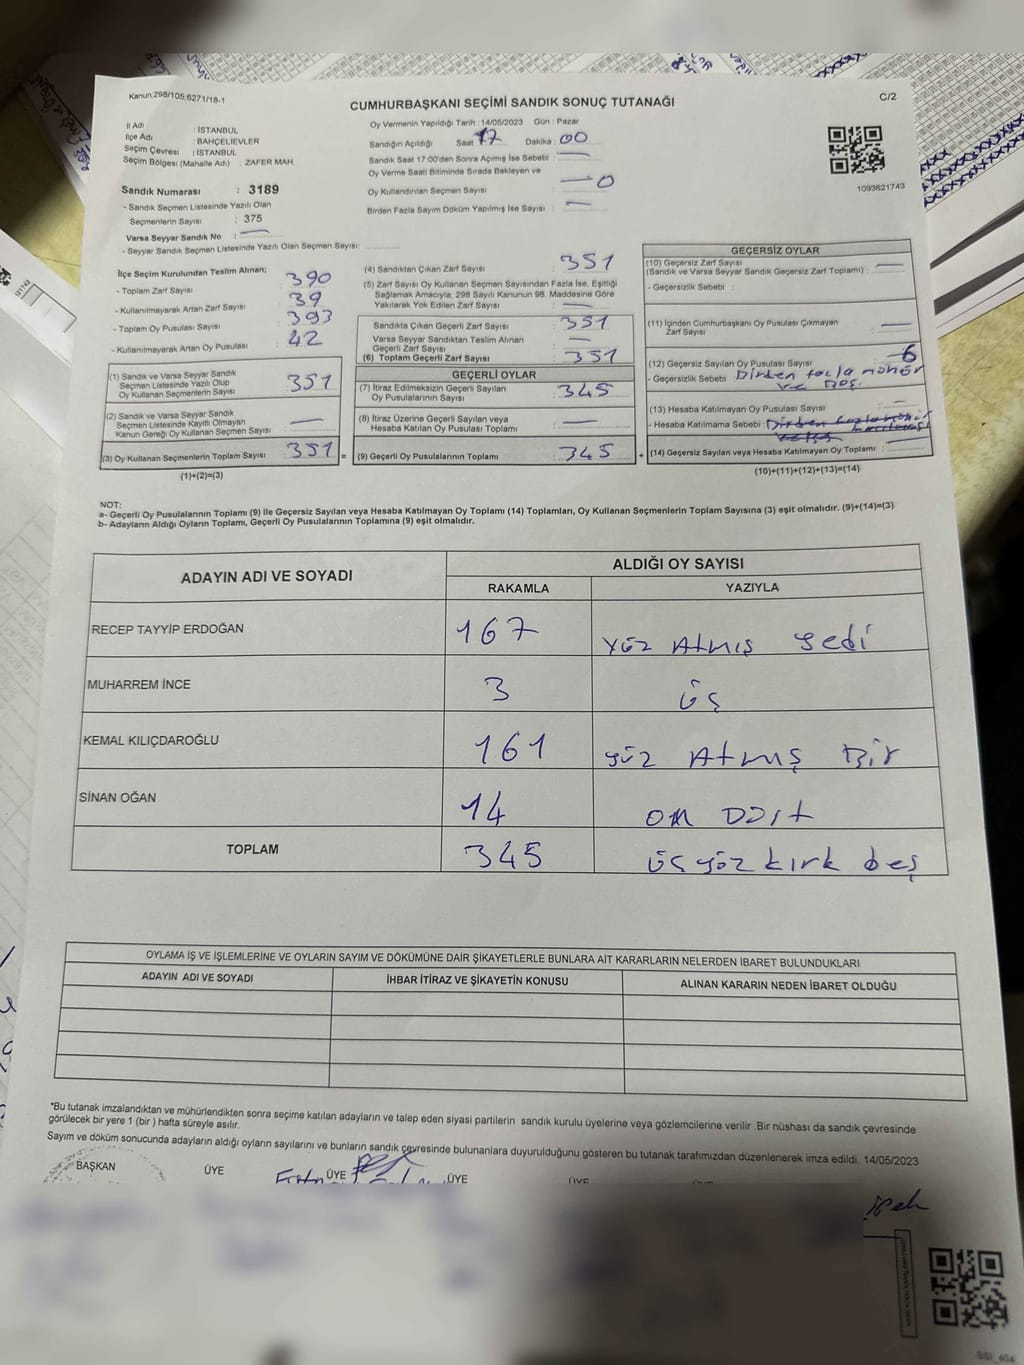 Kanun;298/105;6271/18-1
CUMHURBAŞKANI SEÇİMİ SANDIK SONUÇ TUTANAĞI
C/2
İl Adı : İSTANBUL
İlçe Adı : BAHÇELİEVLER
Seçim Çevresi : İSTANBUL
Seçim Bölgesi (Mahalle Adı) : ZAFER MAH.
Sandık Numarası : 3189
- Sandık Seçmen Listesinde Yazılı Olan
Seçmenlerin Sayısı : 375
Varsa Seyyar Sandık No : —
- Seyyar Sandık Seçmen Listesinde Yazılı Olan Seçmen Sayısı:
Oy Vermenin Yapıldığı Tarih : 14/05/2023 Gün : Pazar
Sandığın Açıldığı Saat 17 Dakika : 00
Sandık Saat 17:00'den Sonra Açımış İse Sebebi : —
Oy Verme Saati Bitiminde Sırada Bekleyen ve
Oy Kullandırılan Seçmen Sayısı : — 0
Birden Fazla Sayım Döküm Yapılmış İse Sayısı : —
1093621743
İlçe Seçim Kurulundan Teslim Alınan;
- Toplam Zarf Sayısı : 390
- Kullanılmayarak Artan Zarf Sayısı : 39
- Toplam Oy Pusulası Sayısı : 393
- Kullanılmayarak Artan Oy Pusulası : 42
(1) Sandık ve Varsa Seyyar Sandık
Seçmen Listesinde Yazılı Olup
Oy Kullanan Seçmenlerin Sayısı : 351
(2) Sandık ve Varsa Seyyar Sandık
Seçmen Listesinde Kayıtlı Olmayan
Kanun Gereği Oy Kullanan Seçmen Sayısı : —
(3) Oy Kullanan Seçmenlerin Toplam Sayısı : 351 =
(1)+(2)=(3)
(4) Sandıktan Çıkan Zarf Sayısı : 351
(5) Zarf Sayısı Oy Kullanan Seçmen Sayısından Fazla İse, Eşitliği
Sağlamak Amacıyla, 298 Sayılı Kanunun 98. Maddesine Göre
Yakılarak Yok Edilen Zarf Sayısı : —
Sandıkta Çıkan Geçerli Zarf Sayısı : 351
Varsa Seyyar Sandıktan Teslim Alınan
Geçerli Zarf Sayısı : —
(6) Toplam Geçerli Zarf Sayısı : 351
GEÇERLİ OYLAR
(7) İtiraz Edilmeksizin Geçerli Sayılan
Oy Pusulalarının Sayısı : 345
(8) İtiraz Üzerine Geçerli Sayılan veya
Hesaba Katılan Oy Pusulası Toplamı : —
(9) Geçerli Oy Pusulalarının Toplamı : 345 +
GEÇERSİZ OYLAR
(10) Geçersiz Zarf Sayısı
(Sandık ve Varsa Seyyar Sandık Geçersiz Zarf Toplamı) : —
- Geçersizlik Sebebi :
(11) İçinden Cumhurbaşkanı Oy Pusulası Çıkmayan
Zarf Sayısı : —
(12) Geçersiz Sayılan Oy Pusulası Sayısı : 6
- Geçersizlik Sebebi : Birden fazla mühür
ve Boş.
(13) Hesaba Katılmayan Oy Pusulası Sayısı : —
- Hesaba Katılmama Sebebi : Birden fazla mühür
(14) Geçersiz Sayılan veya Hesaba Katılmayan Oy Toplamı :
(10)+(11)+(12)+(13)=(14)
NOT:
a- Geçerli Oy Pusulalarının Toplamı (9) ile Geçersiz Sayılan veya Hesaba Katılmayan Oy Toplamı (14) Toplamları, Oy Kullanan Seçmenlerin Toplam Sayısına (3) eşit olmalıdır. (9)+(14)=(3)
b- Adayların Aldığı Oyların Toplamı, Geçerli Oy Pusulalarının Toplamına (9) eşit olmalıdır.
ADAYIN ADI VE SOYADI
ALDIĞI OY SAYISI
RAKAMLA YAZIYLA
RECEP TAYYİP ERDOĞAN 167 yüz Atmış yedi
MUHARREM İNCE 3 üç
KEMAL KILIÇDAROĞLU 161 yüz Atmış Bir
SİNAN OĞAN 14 on Dört
TOPLAM 345 üç yüz kırk beş
OYLAMA İŞ VE İŞLEMLERİNE VE OYLARIN SAYIM VE DÖKÜMÜNE DAİR ŞİKAYETLERLE BUNLARA AİT KARARLARIN NELERDEN İBARET BULUNDUKLARI
ADAYIN ADI VE SOYADI İHBAR İTİRAZ VE ŞİKAYETİN KONUSU ALINAN KARARIN NEDEN İBARET OLDUĞU
*Bu tutanak imzalandıktan ve mühürlendikten sonra seçime katılan adayların ve talep eden siyasi partilerin sandık kurulu üyelerine veya gözlemcilerine verilir .Bir nüshası da sandık çevresinde
görülecek bir yere 1 (bir ) hafta süreyle asılır.
Sayım ve döküm sonucunda adayların aldığı oyların sayılarını ve bunların sandık çevresinde bulunanlara duyurulduğunu gösteren bu tutanak tarafımızdan düzenlenerek imza edildi. 14/05/2023
BAŞKAN ÜYE ÜYE ÜYE ÜYE